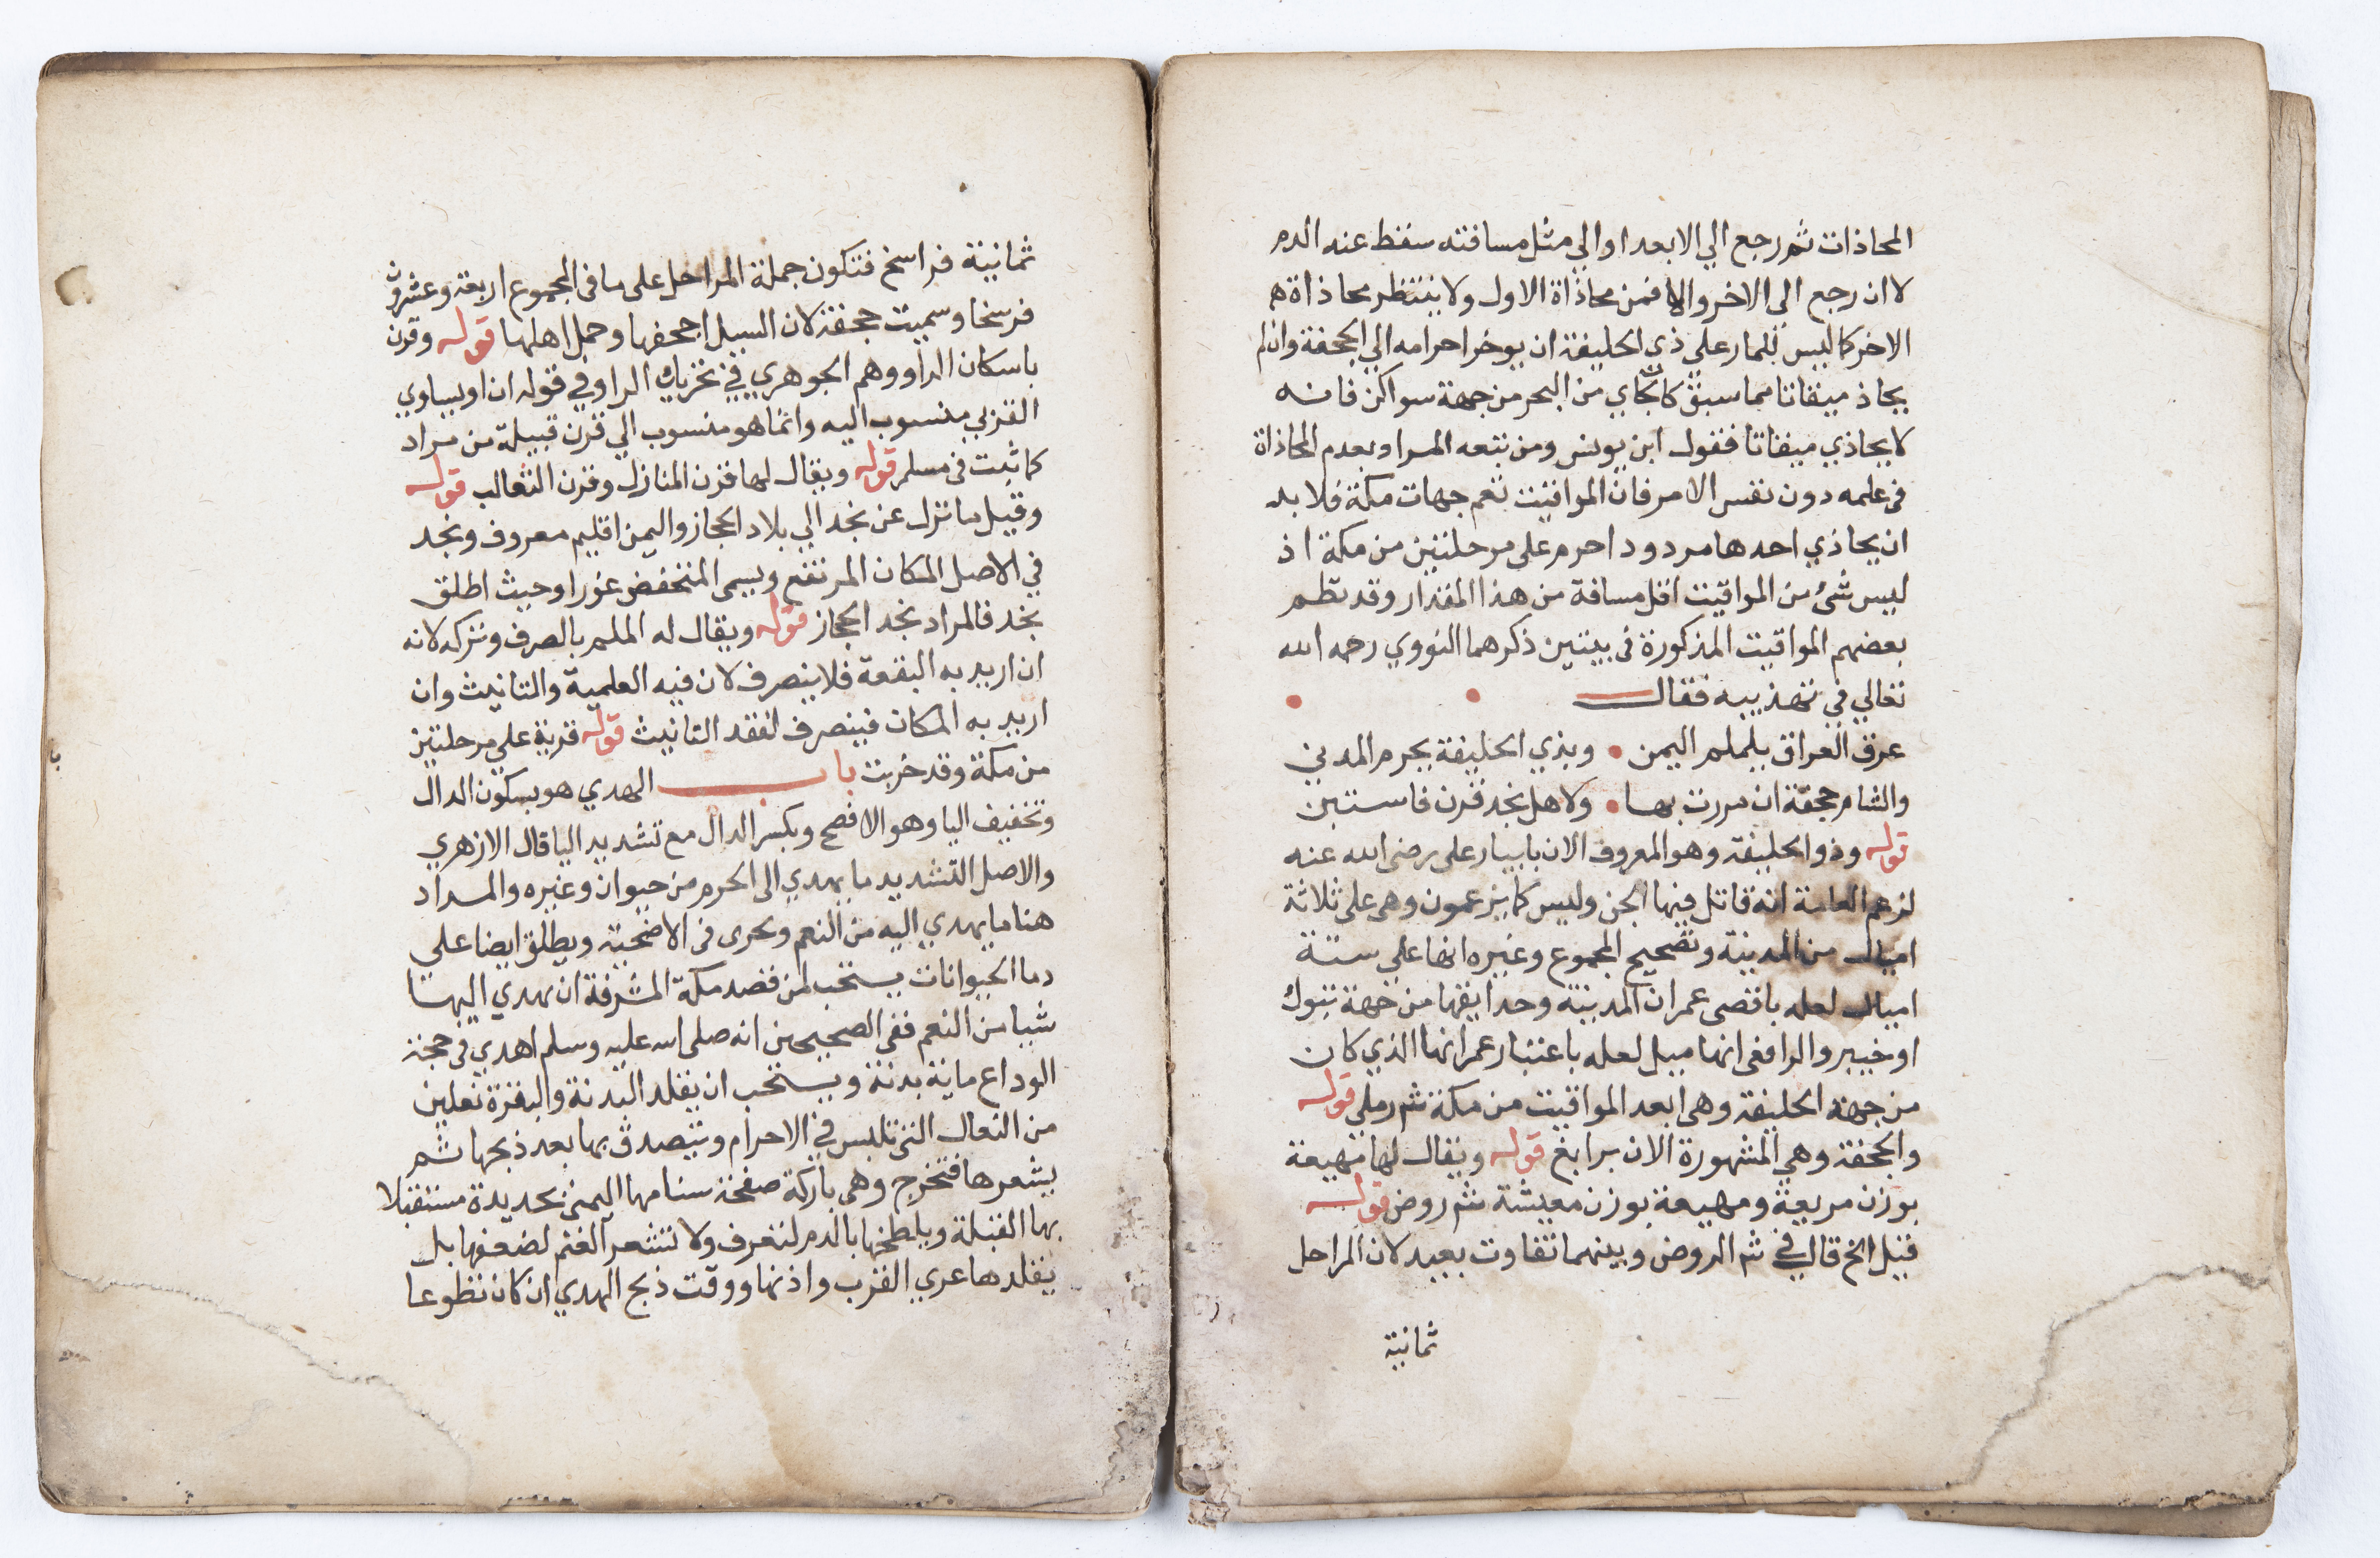 المحاذات ثم رجع الي الابعد او الي مثل مسافته سقط عنه الدم
لا ان رجع الي الاخر والا فمن محاذاة الاول ولا ينتظر محاذاة
الاخر كما ليس للمار علي ذي الحليفة ان يوخر احرامه الي الجحفة وان لم
يحاذ ميقاتا مما سبق كالجاي من البحر من جهة سواكن فانه
لا يحاذي ميقاتا فقول ابن يونس ومن تبعه المراد بعدم المحاذاة
في علمه دون نفس الامر فان المواقيت تعم جهات مكة فلا بد
ان يحاذي احدها مردود احرم على مرحلتين من مكة اذ
ليس شئ من المواقيت اقل مسافة من هذا المقدار وقد نظم
بعضهم المواقيت المذكورة في بيتين ذكرهما النووي رحمه الله
تعالي في تهذيبه فقال
عرق العراق يلملم اليمن • وبذي الحليفة يحرم المدني
والشام جحفة ان مررت بها • ولاهل نجد قرن فاستبن
قوله وذو الحليفة وهو المعروف الان بابيار على رضى الله عنه
لزعم العامة انه قاتل فيها الجن وليس كما يزعمون وهي على ثلاثة
اميال من المدينة وتصحيح المجموع وغيره انها علي ستة
اميال لعله باقصى عمران المدينة وحدايقها من جهة تبوك
او خيبر والرافعي انها ميل لعله باعتبار عمرانها الذي كان
من جهة الحليفة وهي ابعد المواقيت من مكة شم رملي قوله
والجحفة وهي المشهورة الان برابغ قوله ويقال لها مهيعة
بوزن مربعة ومهيعة بوزن معيشة شم روض قوله
قيل الخ قال في شم الروض وبينهما تفاوت بعيد لان المراحل
ثمانية
ثمانية فراسخ فتكون جملة المراحل على ما في المجموع اربعة وعشرون
فرسخا وسميت جحفة لان السيل اجحفها وحمل اهلها قوله وقرن
باسكان الراء ووهم الجوهري في تحريك الراء وفي قوله ان اويسا وي
القرني منسوب اليه وانما هو منسوب الي قرن قبيلة من مراد
كما ثبت في مسلم قوله ويقال لها قرن المنازل وقرن الثعالب قوله
وقيل ما نزل عن نجد الي بلاد الحجاز واليمن اقليم معروف ونجد
في الاصل المكان المرتفع ويسمى المنخفض غورا وحيث اطلق
نجد فالمراد نجد الحجاز قوله ويقال له الملم بالصرف وتركه لانه
ان اريد به البقعة فلا ينصرف لان فيه العلمية والتانيث وان
اريد به المكان فينصرف لفقد التانيث قوله قرية علي مرحلتين
من مكة وقد خربت باب الهدي هو بسكون الدال
وتخفيف اليا وهو الافصح وبكسر الدال مع تشديد اليا قال الازهري
والاصل التشديد ما يهدي الى الحرم من حيوان وغيره والمراد
هنا ما يهدي اليه من النعم ويجرى في الاضحية ويطلق ايضا علي
دما الحيوانات يستحب لمن قصد مكة المشرفة ان يهدي اليها
شيا من النعم ففي الصحيحين انه صلى الله عليه وسلم اهدي في حجة
الوداع ماية بدنة ويستحب ان يقلد البدنة والبقرة نعلين
من النعال التي تلبس في الاحرام ويتصدق بها بعد ذبحها ثم
يشعرها فتخرج وهي باركة صفحة سنامها اليمنى بحديدة مستقبلا
بها القبلة ويلطخها بالدم لتعرف ولا تشعر الغنم لضعفها بل
يقلدها عري القرب واذنها ووقت ذبح الهدي ان كان تطوعا